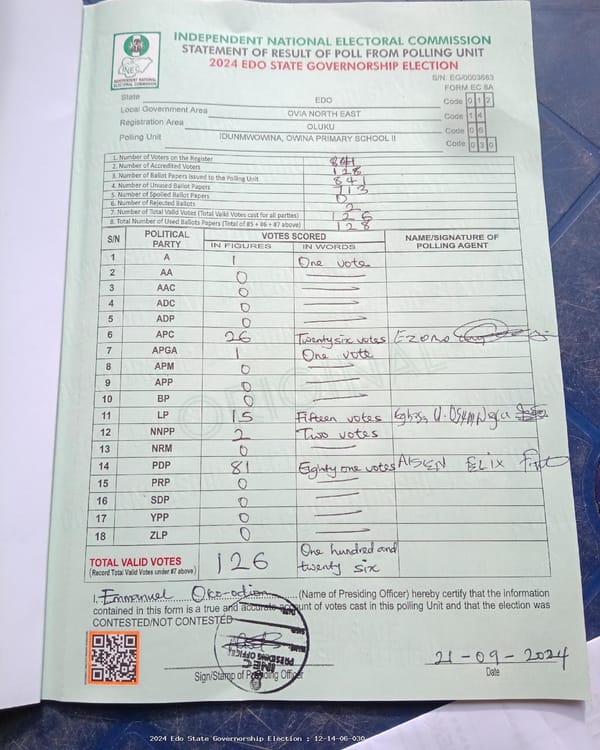 INDEPENDENT NATIONAL ELECTORAL COMMISSION
STATEMENT OF RESULT OF POLL FROM POLLING UNIT
2024 EDO STATE GOVERNORSHIP ELECTION
INEC
INDEPENDENT NATIONAL ELECTORAL COMMISSION
S/N: EG/0003663
FORM EC 8A
State EDO Code 0 1 2
Local Government Area OVIA NORTH EAST Code 1 4
Registration Area OLUKU Code 0 6
Polling Unit IDUNMWOWINA, OWINA PRIMARY SCHOOL II Code 0 3 0
1. Number of Voters on the Register 841
2. Number of Accredited Voters 128
3. Number of Ballot Papers Issued to the Polling Unit 841
4. Number of Unused Ballot Papers 713
5. Number of Spoiled Ballot Papers 0
6. Number of Rejected Ballots 2
7. Number of Total Valid Votes (Total Valid Votes cast for all parties) 126
8. Total Number of Used Ballots Papers (Total of #5 + #6 + #7 above) 128
S/N POLITICAL PARTY VOTES SCORED NAME/SIGNATURE OF POLLING AGENT
IN FIGURES IN WORDS
1 A 1 One vote
2 AA 0
3 AAC 0
4 ADC 0
5 ADP 0
6 APC 26 Twenty six votes
7 APGA 1 One vote
8 APM 0
9 APP 0
10 BP 0
11 LP 15 Fifteen votes
12 NNPP 2 Two votes
13 NRM 0
14 PDP 81 Eighty one votes
15 PRP 0
16 SDP 0
17 YPP 0
18 ZLP 0
TOTAL VALID VOTES 126 One hundred and
(Record Total Valid Votes under #7 above) twenty six
ORIGINAL
I, Emmanuel Oko-odion (Name of Presiding Officer) hereby certify that the information
contained in this form is a true and accurate account of votes cast in this polling Unit and that the election was
CONTESTED/NOT CONTESTED
INEC
PRESIDING OFFICER
21-09-2024
Sign/Stamp of Presiding Officer Date
2024 Edo State Governorship Election : 12-14-06-030